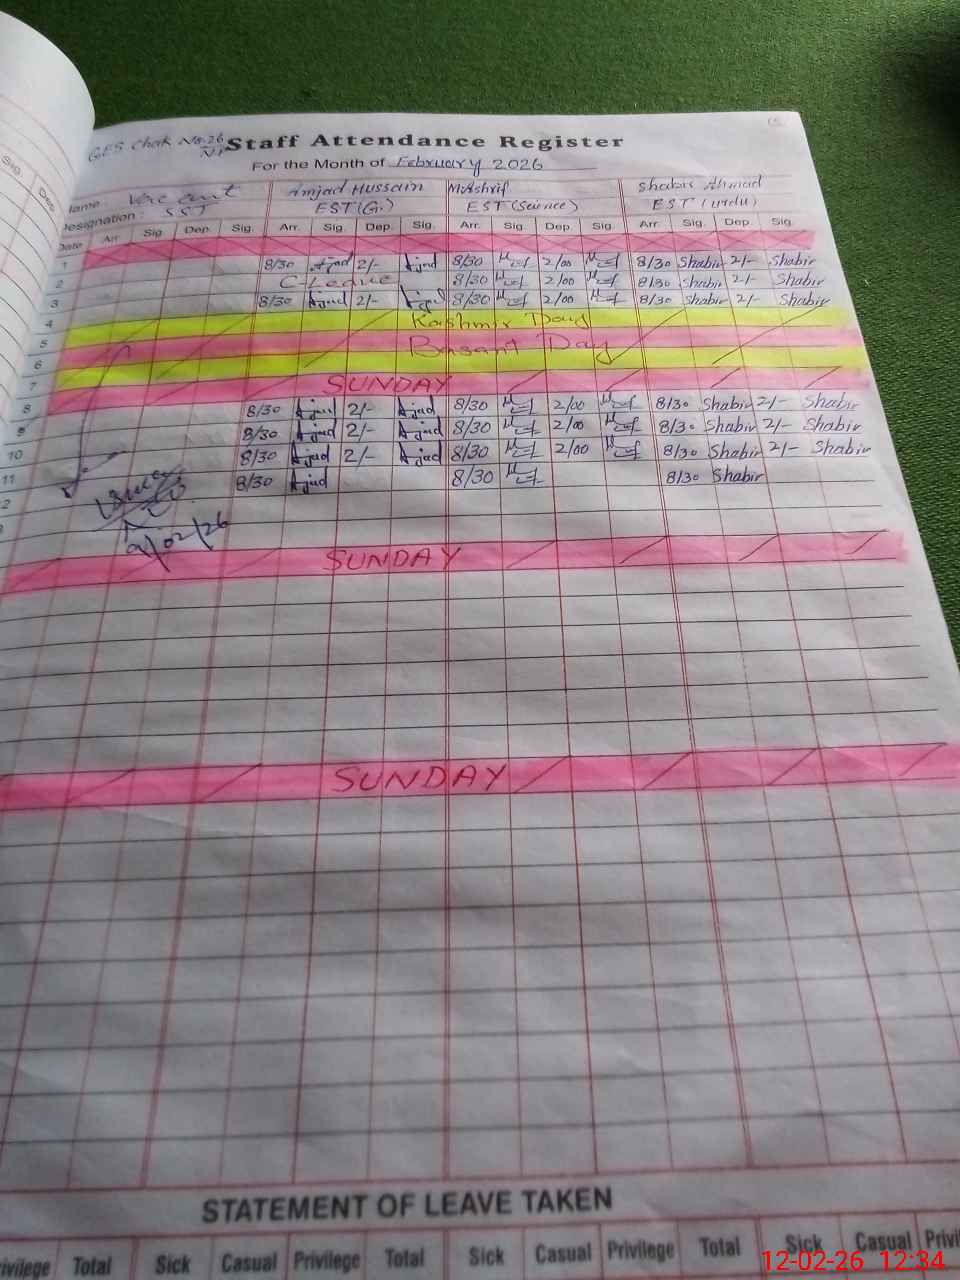 GES Chak No. 26
Staff Attendance Register
For the Month of February 2026
Name Amjad Hussain M.Ashrif Shabir Ahmad
Designation : SST EST(G.) EST (Science) EST (urdu)
Date Arr. Sig. Dep. Sig. Arr. Sig. Dep. Sig. Arr. Sig. Dep. Sig. Arr. Sig. Dep. Sig.
1 8/30 Ajad 2/- Ajad 8/30 2/00 8/30 Shabir 2/- Shabir
2 C-Leave 8/30 2/00 8/30 Shabir 2/- Shabir
3 8/30 Ajad 2/- Ajad 8/30 2/00 8/30 Shabir 2/- Shabir
4 Kashmir Day
5 Basant Day
6
7 SUNDAY
8 8/30 Ajad 2/- Ajad 8/30 2/00 8/30 Shabir 2/- Shabir
9 8/30 Ajad 2/- Ajad 8/30 2/00 8/30 Shabir 2/- Shabir
10 8/30 Ajad 2/- Ajad 8/30 2/00 8/30 Shabir 2/- Shabir
11 8/30 Ajad 8/30 8/30 Shabir
9/02/26
SUNDAY
SUNDAY
STATEMENT OF LEAVE TAKEN
Total Sick Casual Privilege Total Sick Casual Privilege Total Sick Casual
12-02-26 12:34